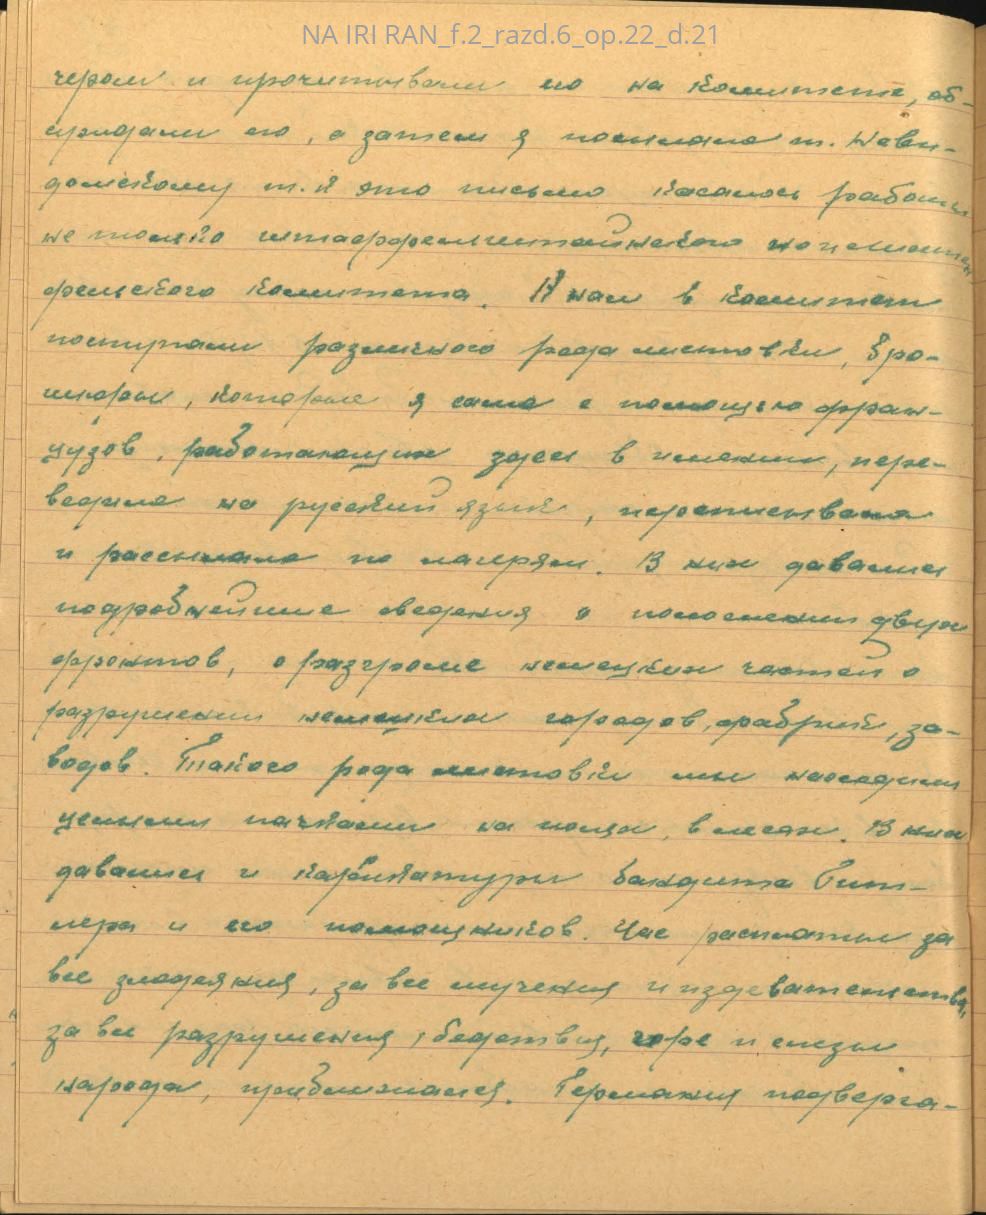 NA IRI RAN_f.2_razd.6_op.22_d.21
чером и прочитывали его на комитете, об-
суждали его, а затем я посылала т.
т. к это письмо касалось работы
не только но и
фельского комитета. К нам в комитет
поступали различного рода листовки, бро-
шюры, которые я сама с помощью фран-
цузов, работающих здесь в имении, пере-
водила на русский язык, переписывала
и рассылала по лагерям. В них давались
подробнейшие сведения о положении двух
фронтов, о разгроме немецких частей о
разрушении немецких городов, фабрик, за-
водов. Такого рода листовки мы находили
целыми пачками на полях, в лесах. В них
давались и карикатуры бандита Гит-
лера и его помощников. Час расплаты за
все злодеяния, за все мучения и издевательства,
за все разрушения, бедствия, горе и слезы
народа, приближался. Германия подверга-